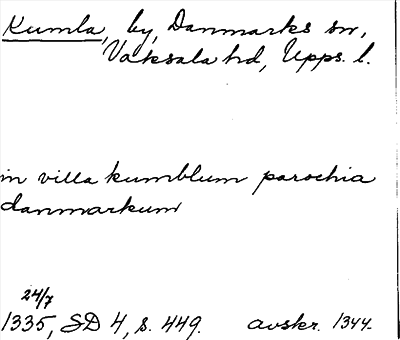 Kumla, by, Danmarks sn,
Vaksala hd, Upps. l.
in villa kumblum parochia
danmarkum
24/7
1335, SD 4, s. 449. avskr. 1344.